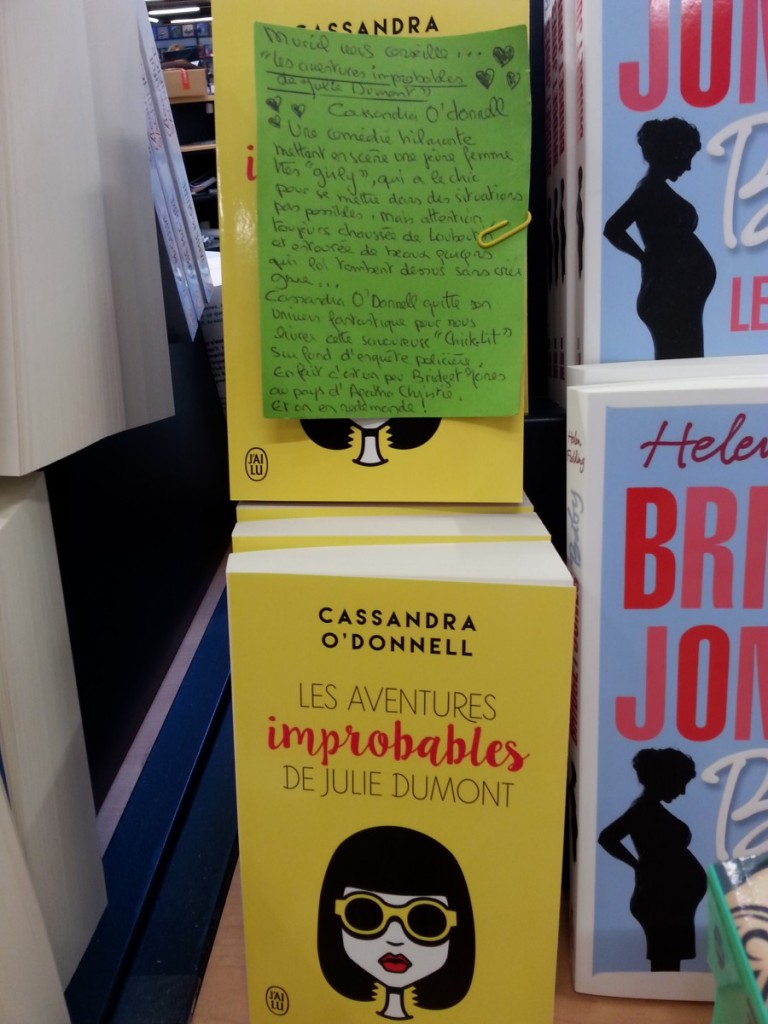 CASSANDRA
Muriel vous conseille...
"Les aventures improbables
de Julie Dumont"
Cassandra O'donnell
Une comédie hilarante
mettant en scène une jeune femme
très "girly", qui a le chic
pour se mettre dans des situations
pas possibles, mais attention,
toujours chaussée de Loubout
et entourée de beaux garçons
qui lui tombent dessus sans crier
gare...
Cassandra O'Donnell quitte son
univers fantastique pour nous
livrer cette savoureuse "Chicklit"
sur fond d'enquête policière.
En fait c'est un peu Bridget Jones
au pays d'Agatha Christie.
Et on en redemande !
J'AI LU
CASSANDRA
O'DONNELL
LES AVENTURES
improbables
DE JULIE DUMONT
J'AI LU
JON
B
LE
Helen
Fielding
Baby
Helen
BRI
JON
B